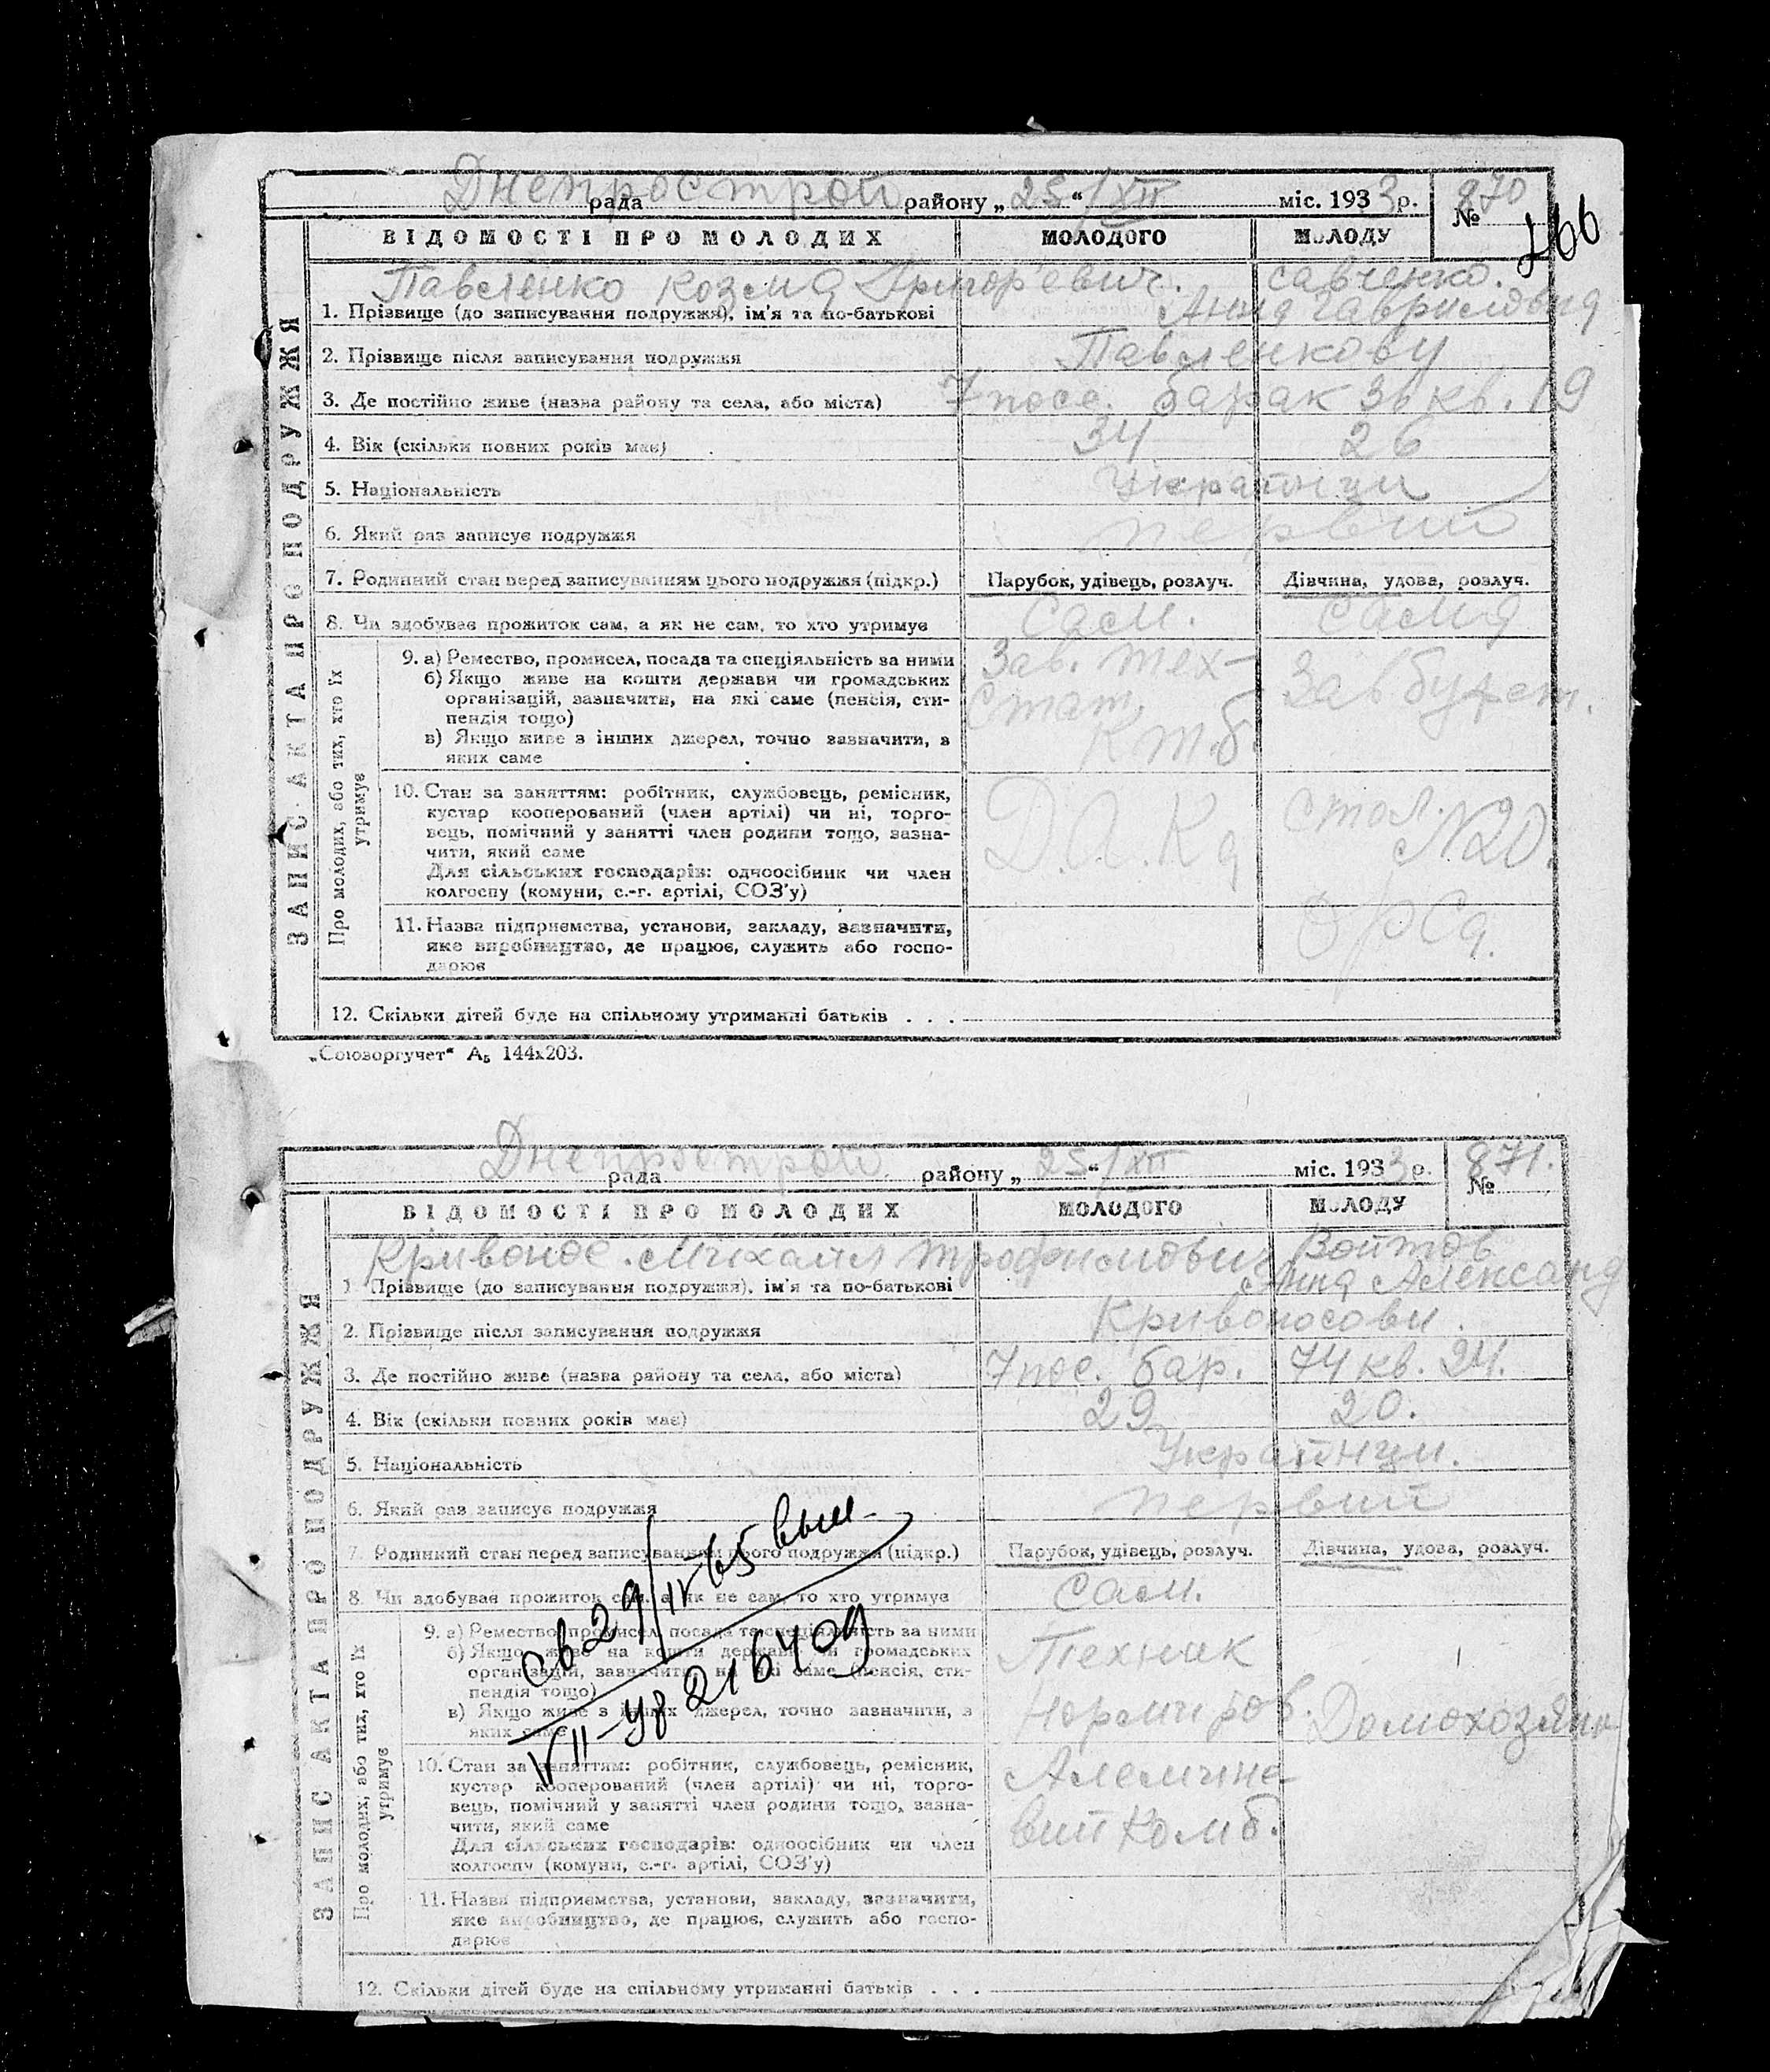 Днепрострой рада району „25“ /XII міс. 1933 р. № 870
466
ВІДОМОСТІ ПРО МОЛОДИХ МОЛОДОГО МОЛОДУ
ЗАПИС АКТА ПРО ПОДРУЖЖЯ
Павленко Козма Григорьевич. Савченко.
Анна Гавриловна
1. Прізвище (до записування подружжя), ім'я та по-батькові
2. Прізвище після записування подружжя Павленкови
3. Де постійно живе (назва району та села, або міста) 7 посе. барак 36 кв. 19
4. Вік (скільки повних років має) 34 26
5. Національність Українци
6. Який раз записує подружжя первий
7. Родинний стан перед записуванням цього подружжя (підкр.) Парубок, удівець, розлуч. Дівчина, удова, розлуч.
8. Чи здобуває прожиток сам, а як не сам, то хто утримує Сам. Сама
Про молодих, або тих, хто їх утримує
9. а) Ремество, промисел, посада та спеціяльність за ними Зав. тех-
б) Якщо живе на кошти держави чи громадських Зав буфет.
організацій, зазначити, на які саме (пенсія, сти- Стат.
пендія тощо) К т.б.
в) Якщо живе з інших джерел, точно зазначити, з
яких саме
10. Стан за заняттям: робітник, службовець, ремісник,
кустар кооперований (член артілі) чи ні, торго- стол.
вець, помічний у занятті член родини тощо, зазна- Д.А.Ка N20.
чити, який саме
Для сільських господарів: одноосібник чи член
колгоспу (комуни, с.-г. артілі, СОЗ'у)
11. Назва підприємства, установи, закладу, зазначити, ОрСа.
яке виробництво, де працює, служить або госпо-
дарює
12. Скільки дітей буде на спільному утриманні батьків . . .
„Союзоргучет“ А₅ 144х203.
Днепрострой рада району „25“ /XII міс. 1933 р. № 871.
ВІДОМОСТІ ПРО МОЛОДИХ МОЛОДОГО МОЛОДУ
ЗАПИС АКТА ПРО ПОДРУЖЖЯ
Кривонос. Михаил Трофимович Войтов
Анна Александ
1 Прізвище (до записування подружжя), ім'я та по-батькові
2. Прізвище після записування подружжя Кривоносови.
3. Де постійно живе (назва району та села, або міста) 7 пос. бар. 74 кв. 24.
4. Вік (скільки повних років має) 29 20.
5. Національність Українци.
6. Який раз записує подружжя первий
7. Родинний стан перед записуванням цього подружжя (підкр.) Парубок, удівець, розлуч. Дівчина, удова, розлуч.
8. Чи здобуває прожиток сам, а як не сам, то хто утримує Сам.
Св 29/IV-65 вып.
VII-УЯ 216409
Про молодих, або тих, хто їх утримує
9. а) Ремество, промисел, посада та спеціяльність за ними Техник
б) Якщо живе на кошти держави чи громадських
організацій, зазначити, на які саме (пенсія, сти-
пендія тощо)
в) Якщо живе з інших джерел, точно зазначити, з Нормиров. Домохозяйн
яких саме
10. Стан за заняттям: робітник, службовець, ремісник, Алемине-
кустар кооперований (член артілі) чи ні, торго-
вець, помічний у занятті член родини тощо, зазна- вий Комб.
чити, який саме
Для сільських господарів: одноосібник чи член
колгоспу (комуни, с.-г. артілі, СОЗ'у)
11. Назва підприємства, установи, закладу, зазначити,
яке виробництво, де працює, служить або госпо-
дарює
12. Скільки дітей буде на спільному утриманні батьків . . .